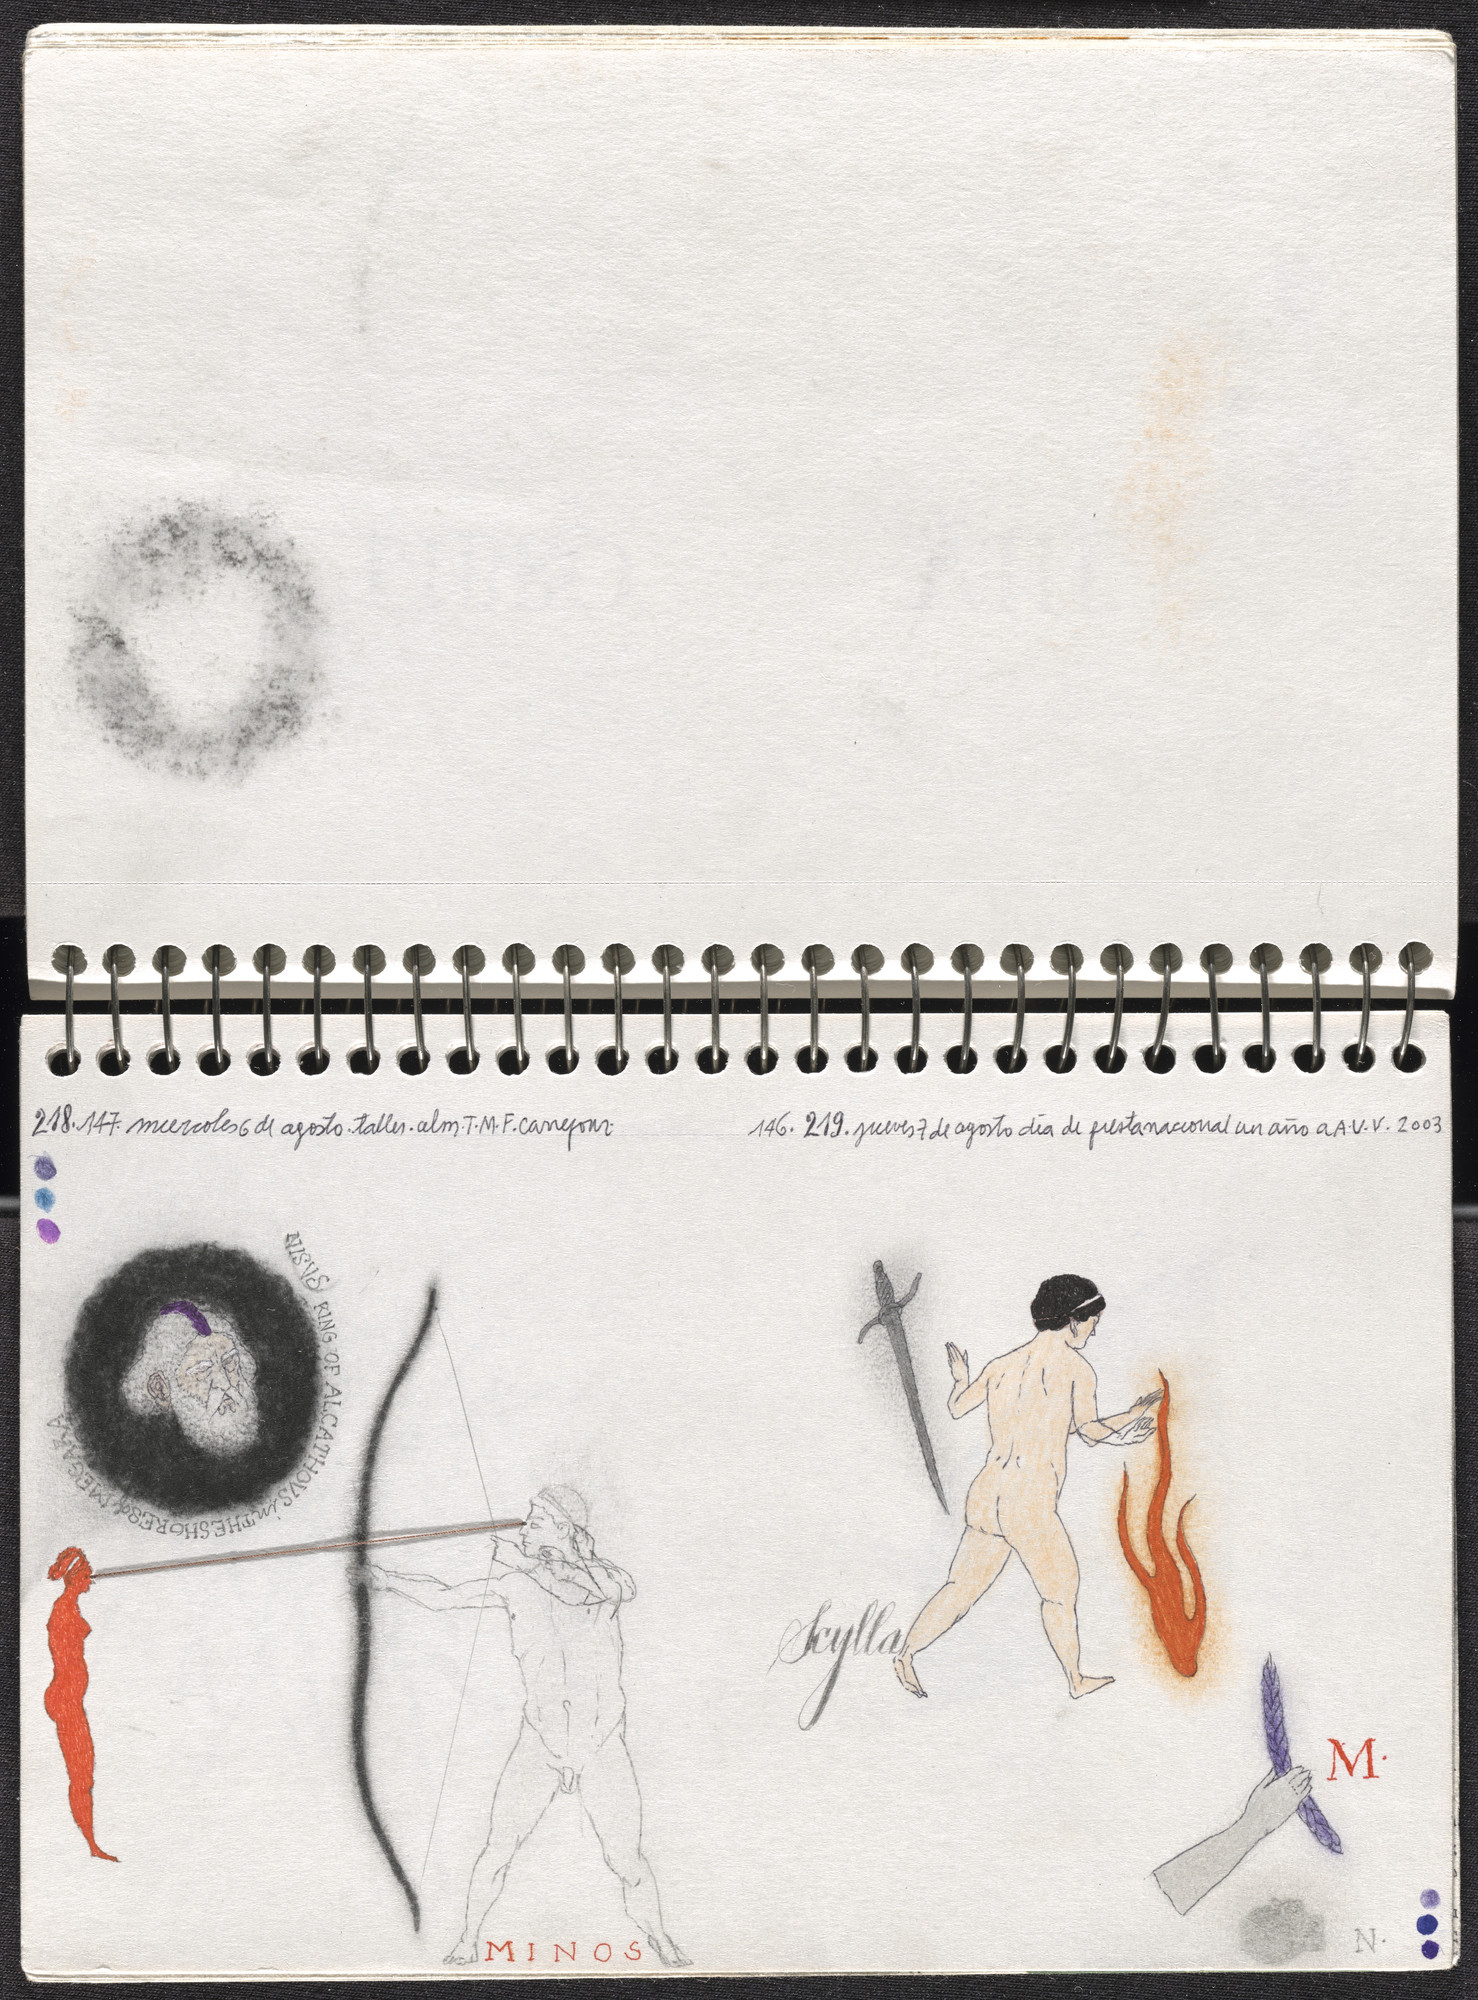 218. 147. miercoles 6 de agosto. taller. alm. T. M. F. Carrefour.
146. 219. jueves 7 de agosto día de fiesta nacional un año a A. V. V. 2003
NISVS KING OF ALCATHOVS in THE SHORES of MEGARA
MINOS
Scylla
M.
N.